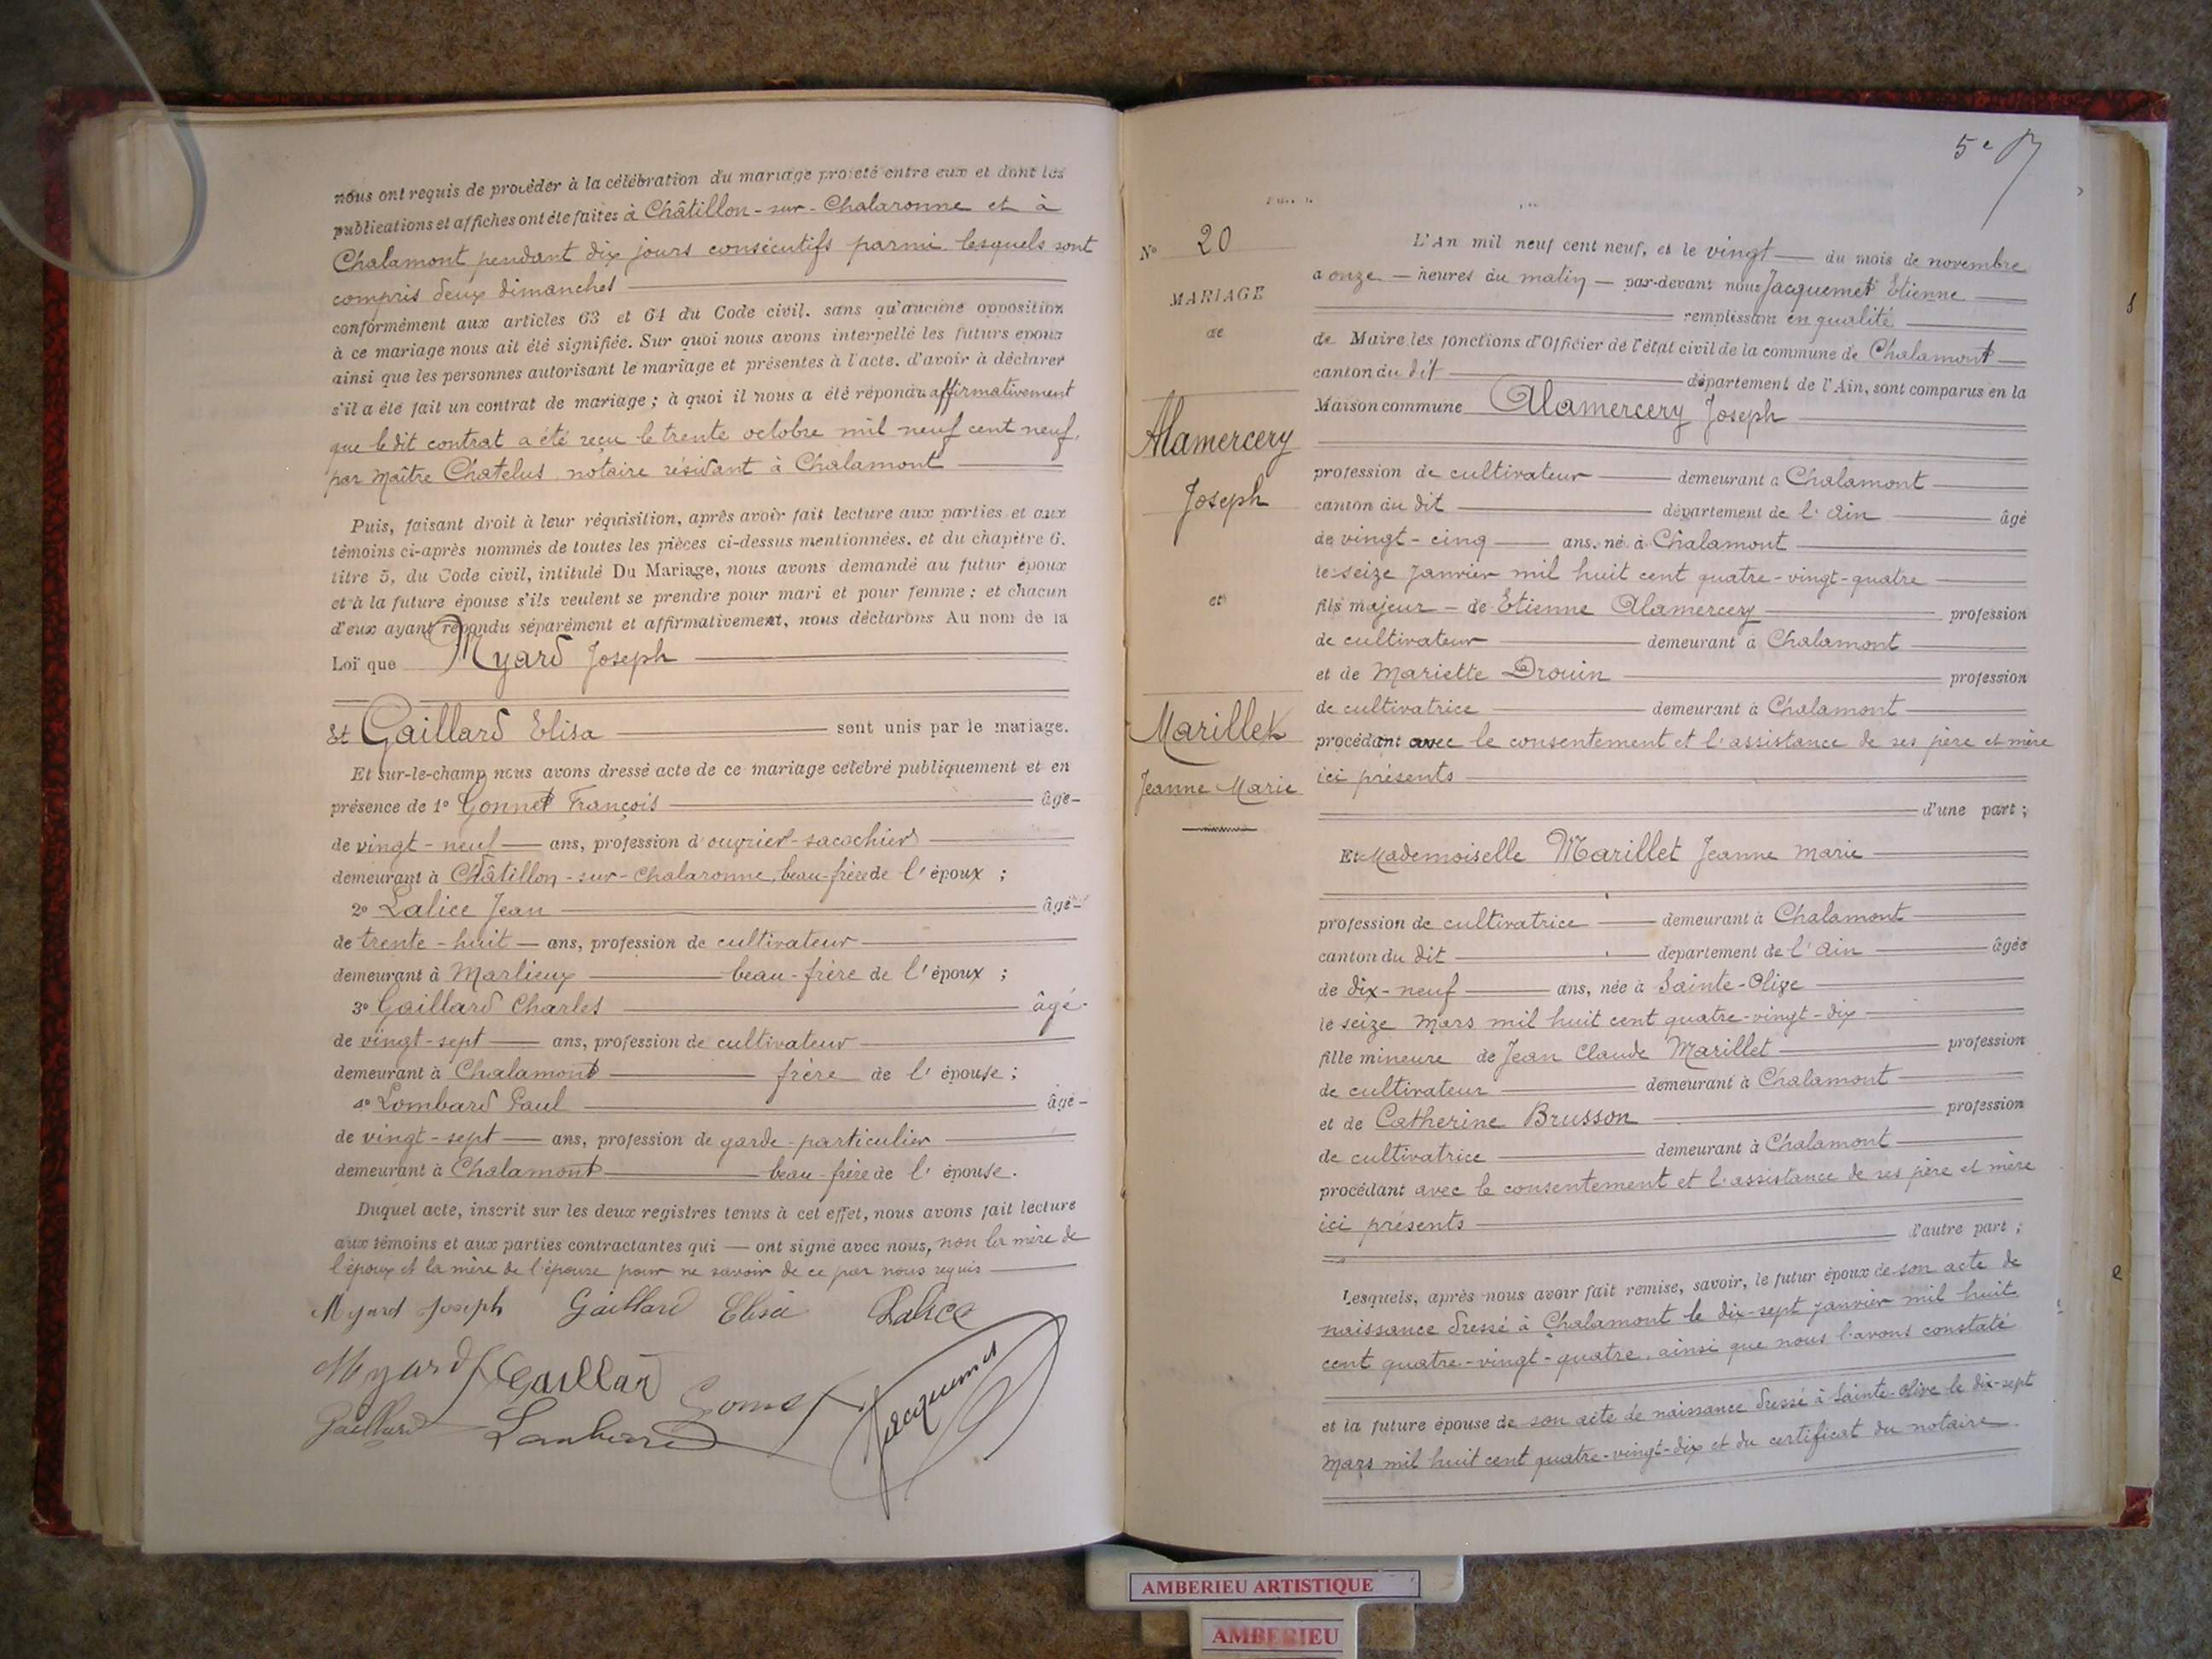 nous ont requis de procéder à la célébration du mariage projeté entre eux et dont les
publications et affiches ont été faites à Châtillon-sur-Chalaronne et à
Chalamont pendant dix jours consécutifs parmi lesquels sont
compris deux dimanches
conformément aux articles 63 et 64 du Code civil, sans qu'aucune opposition
à ce mariage nous ait été signifiée. Sur quoi nous avons interpellé les futurs époux
ainsi que les personnes autorisant le mariage et présentes à l'acte, d'avoir à déclarer
s'il a été fait un contrat de mariage ; à quoi il nous a été répondu affirmativement
que ledit contrat a été reçu le trente octobre mil neuf cent neuf,
par Maître Chatelus notaire résidant à Chalamont
Puis, faisant droit à leur réquisition, après avoir fait lecture aux parties et aux
témoins ci-après nommés de toutes les pièces ci-dessus mentionnées, et du chapitre 6,
titre 5, du Code civil, intitulé Du Mariage, nous avons demandé au futur époux
et à la future épouse s'ils veulent se prendre pour mari et pour femme ; et chacun
d'eux ayant répondu séparément et affirmativement, nous déclarons Au nom de la
Loi que Myard Joseph
Et Gaillard Elisa sont unis par le mariage.
Et sur-le-champ nous avons dressé acte de ce mariage célébré publiquement et en
présence de 1° Gonnet François âgé
de vingt-neuf ans, profession d'ouvrier-sacochier
demeurant à Châtillon-sur-Chalaronne, beau-frère de l'époux ;
2° Lalice Jean âgé
de trente-huit ans, profession de cultivateur
demeurant à Marlieux beau-frère de l'époux ;
3° Gaillard Charles âgé
de vingt-sept ans, profession de cultivateur
demeurant à Chalamont frère de l'épouse ;
4° Lombard Paul âgé
de vingt-sept ans, profession de garde-particulier
demeurant à Chalamont beau-frère de l'épouse.
Duquel acte, inscrit sur les deux registres tenus à cet effet, nous avons fait lecture
aux témoins et aux parties contractantes qui ont signé avec nous, non la mère de
l'époux et la mère de l'épouse pour ne savoir de ce par nous requis
Myard Joseph Gaillard Elisa Lalice
Myard Gaillard Gonnet Jacquemet
Gaillard Lombard
5e
N° 20
MARIAGE
de
Alamercery
Joseph
et
Marillet
Jeanne Marie
L'An mil neuf cent neuf, et le vingt du mois de novembre
a onze heures du matin par-devant nous Jacquemet Etienne
remplissant en qualité
de Maire les fonctions d'Officier de l'état civil de la commune de Chalamont
canton du dit département de l'Ain, sont comparus en la
Maison commune Alamercery Joseph
profession de cultivateur demeurant à Chalamont
canton du dit département de l'Ain âgé
de vingt-cinq ans, né à Chalamont
le seize Janvier mil huit cent quatre-vingt-quatre
fils majeur de Etienne Alamercery profession
de cultivateur demeurant à Chalamont
et de Mariette Drouin profession
de cultivatrice demeurant à Chalamont
procédant avec le consentement et l'assistance de ses père et mère
ici présents
d'une part ;
Et Mademoiselle Marillet Jeanne Marie
profession de cultivatrice demeurant à Chalamont
canton du dit département de l'Ain âgée
de dix-neuf ans, née à Sainte-Olive
le seize Mars mil huit cent quatre-vingt-dix
fille mineure de Jean Claude Marillet profession
de cultivateur demeurant à Chalamont
et de Catherine Brusson profession
de cultivatrice demeurant à Chalamont
procédant avec le consentement et l'assistance de ses père et mère
ici présents
d'autre part ;
Lesquels, après nous avoir fait remise, savoir, le futur époux de son acte de
naissance dressé à Chalamont le dix-sept janvier mil huit
cent quatre-vingt-quatre, ainsi que nous l'avons constaté
et la future épouse de son acte de naissance dressé à Sainte-Olive le dix-sept
Mars mil huit cent quatre-vingt-dix et du certificat du notaire
AMBERIEU ARTISTIQUE
AMBERIEU